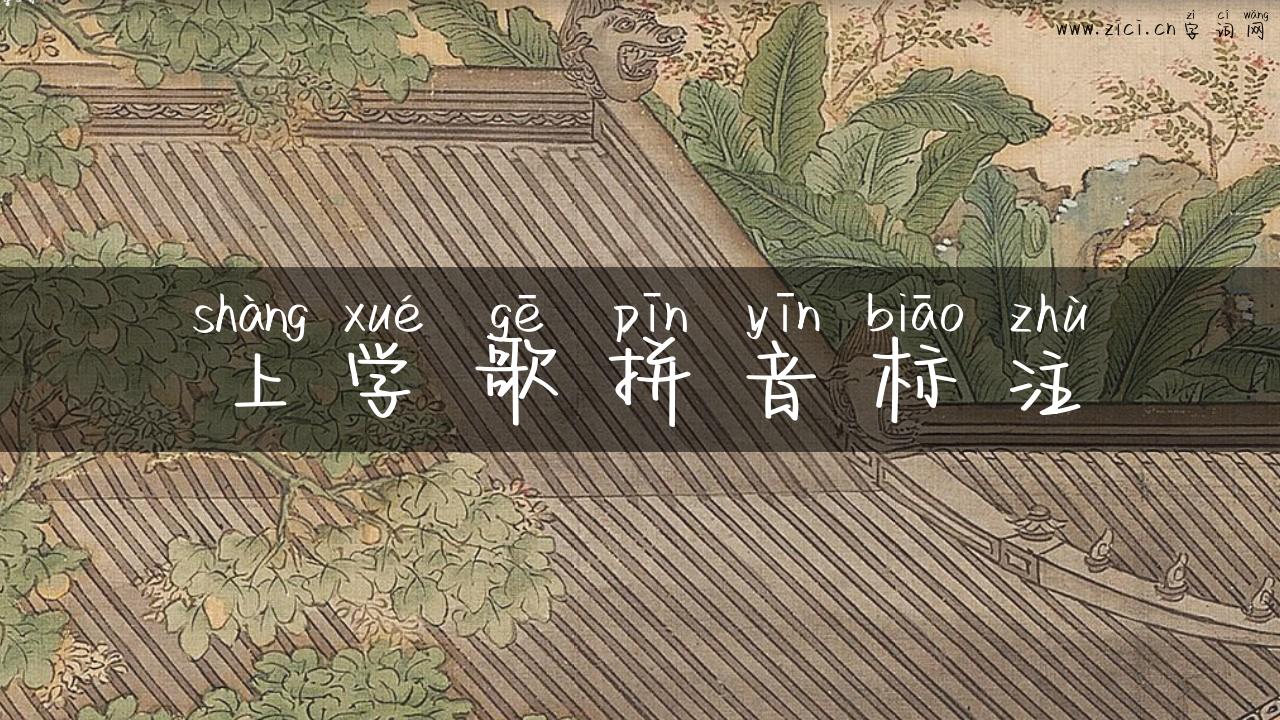 zì cí wǎng
www.zici.cn 字词网
shàng xué gē pīn yīn biāo zhù
上学歌拼音标注